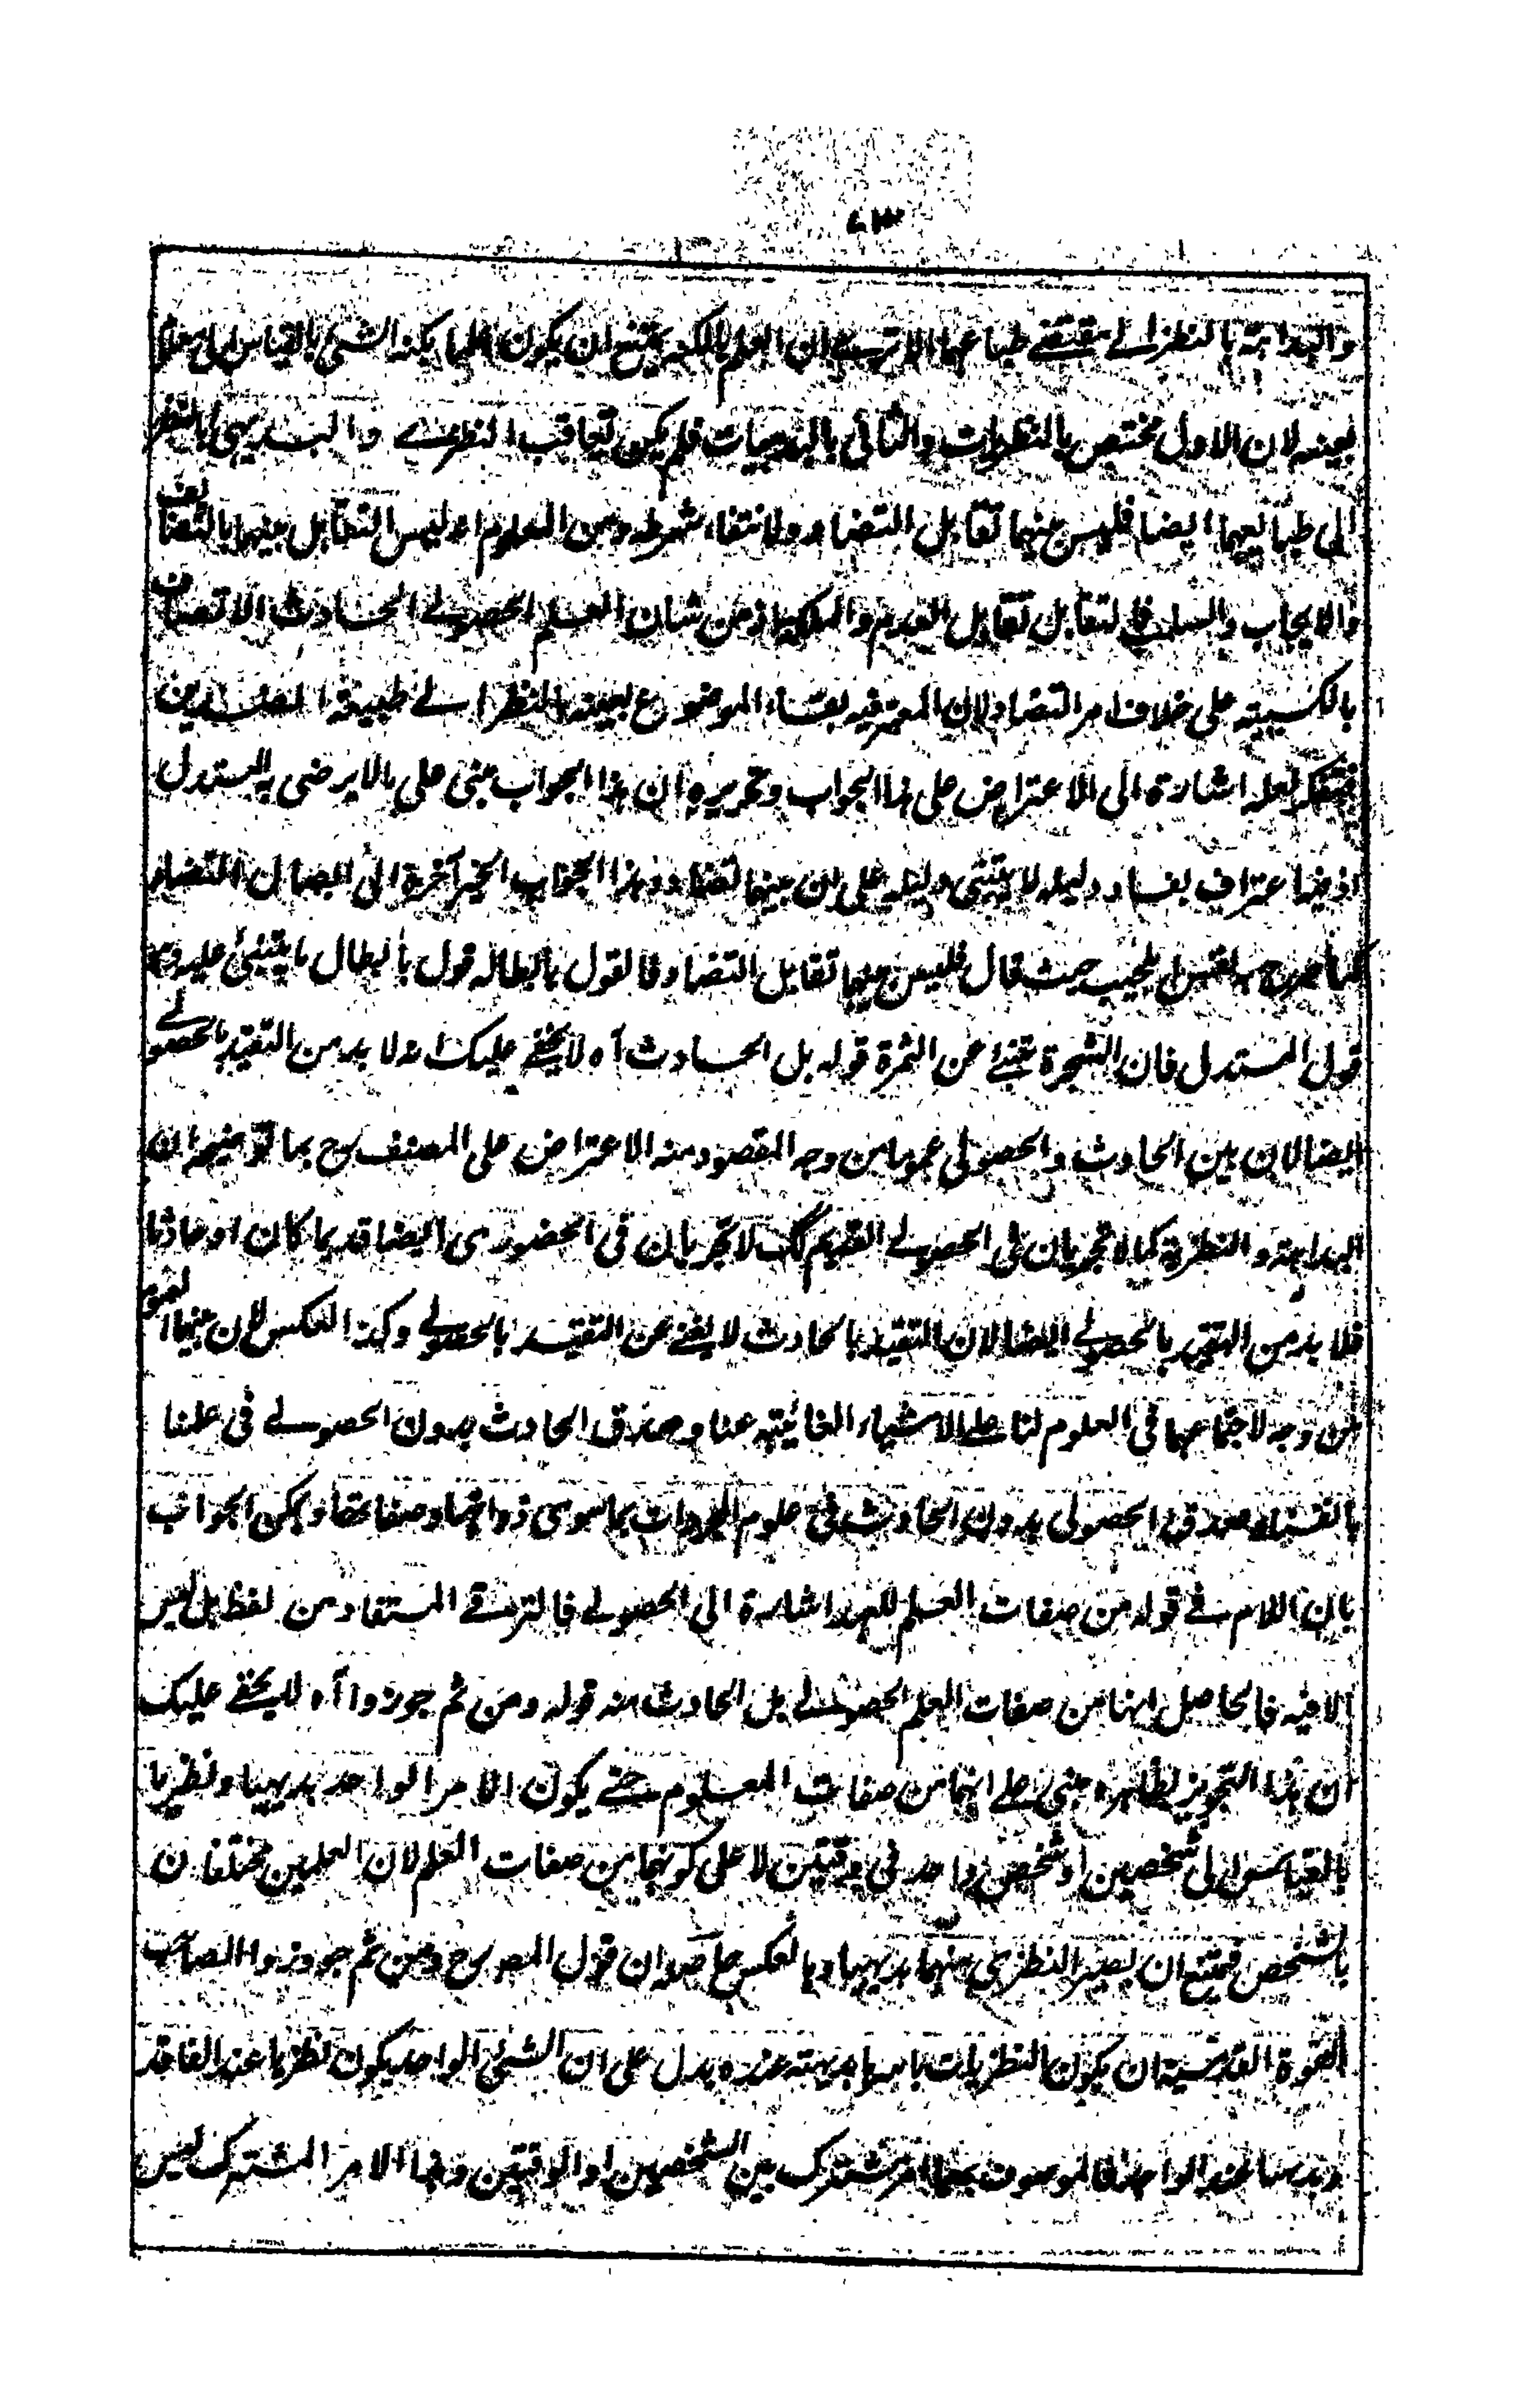 والبداهة بالنظر الے مقتضے طباعهما الا ترے ان العلم بالكنه يمتنع ان يكون علما بكنه الشئ بالقياس الى علا
بعينه لان الاول مختص بالنظريات والثانى بالبديهيات فلم يكن تعاقب النظرے والبديهى بالنظر
الى طبائعهما ايضا فليس بينهما تقابل التضاد ولانتفاء شرطه ومن المعلوم انه ليس التقابل بينهما بالتضايف
والايجاب والسلب فالتقابل تقابل العدم والملكة اذ من شان العلم الحصولے الحادث الاتصاف
بالكسبية على خلاف امر التضاد لان المعتبر فيه بقاء الموضوع بعينه بالنظر الے طبيعة الضدين
فتفكر لعله اشارة الى الاعتراض على هذا الجواب وتحريره ان هذا الجواب مبنى على مالا يرضى به المستدل
اذ فيه اعتراف بفساد دليله لابتنى دليله على ان بينهما تضادا وهذا الجواب انجر آخره الى ابطال التضاد
كما صرح به المجيب حيث قال فليس بينهما تقابل التضاد فالقول بابطاله قول بابطال ما يبتنئ عليه
قول المستدل فان الشجرة تنبئ عن الثمرة قوله بل الحادث آه لا يخفے عليك انه لا بد من التقييد بالحصولے
ايضا لان بين الحادث والحصولى عموما من وجه المقصود منه الاعتراض على المصنف رح بما توضيحه ان
البداهة والنظرية كما لا تجريان فى الحصولے القديم كك لا تجريان فى الحضورى ايضا قديما كان او حادثا
فلا بد من التقييد بالحصولے ايضا لان التقييد بالحادث لا يغنے عن التقييد بالحصولے وكذا العكس لان بينهما العموم
من وجه لاجتماعهما فى العلوم لنا علے الاشياء الغائبة عنا وصدق الحادث بدون الحصولے فى علمنا
بانفسنا وصدق الحصولى بدون الحادث فى علوم المجردات بما سوى ذواتها وصفاتها ويمكن الجواب
بان اللام فے قوله من صفات العلم للعهد اشارة الى الحصولے فالترقے المستفاد من لفظ بل ليس
الا فيه فالحاصل انها من صفات العلم الحصولے بل الحادث منه قوله ومن ثم جوزوا آه لا يخفے عليك
ان هذا التجويز بظاهره مبنى علے انهما من صفات المعلوم حتے يكون الامر الواحد بديهيا ونظريا
بالقياس الى شخصين او شخص واحد فى وقتين لا على كونهما من صفات العلم لان العلمين مختلفان
بالشخص فيمتنع ان يصير النظرى منهما بديهيا وبالعكس حاصله ان قول المص رح ومن ثم جوزوا لصاحب
القوة القدسية ان يكون النظريات باسرها بديهية عنده يدل على ان الشئ الواحد يكون نظريا عند الفاقد
وبديهيا عند الواجد فالموصوف بهما امر مشترك بين الشخصين او الوقتين وهذا الامر المشترك ليس